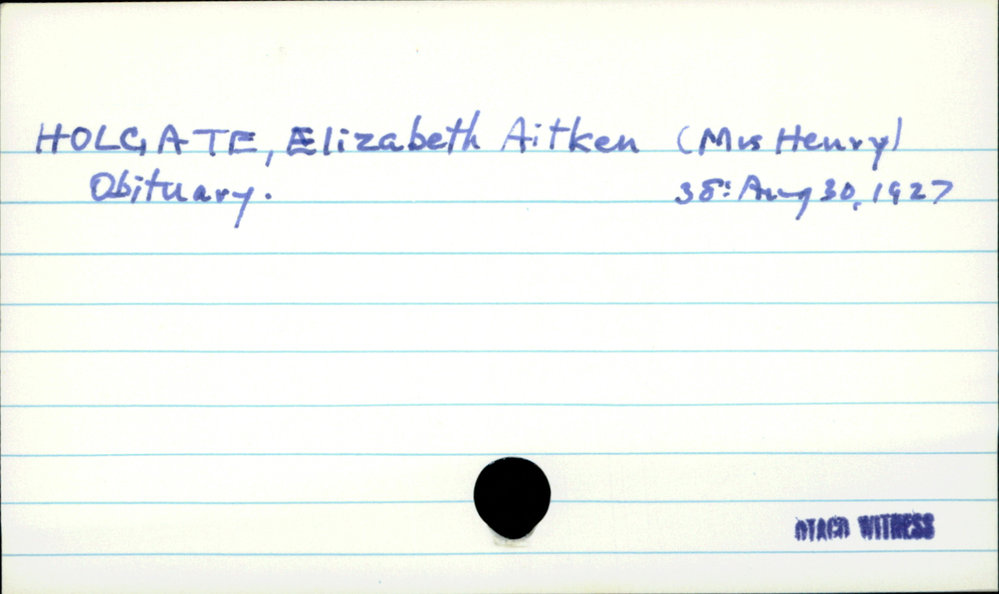 HOLGATE, Elizabeth Aitken (Mrs Henry)
Obituary. 38: Aug 30, 1927
OTAGO WITNESS